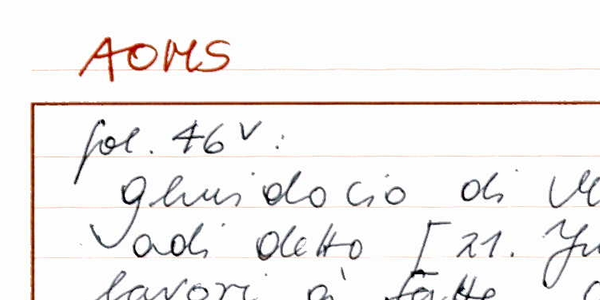 AOMS
fol. 46v:
ghuidocio di
adi detto [21.
lavori à fatte